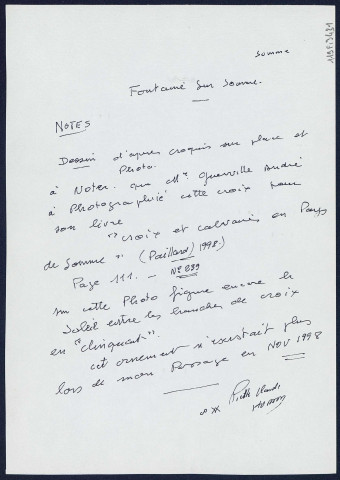 Somme
Fontaine sur Somme.
NOTES
Dessin d'après croquis sur place et
Photo.
à Noter que Mr Guerville André
à Photographié cette croix pour
son livre
"Croix et calvaires en Pays
de Somme" (Paillard) 1998.)
Page 111. - N° 299
sur cette Photo figure encore le
Soleil entre les branches de croix
en "clinquant".
cet ornement n'existait plus
lors de mon Passage en NOV 1998